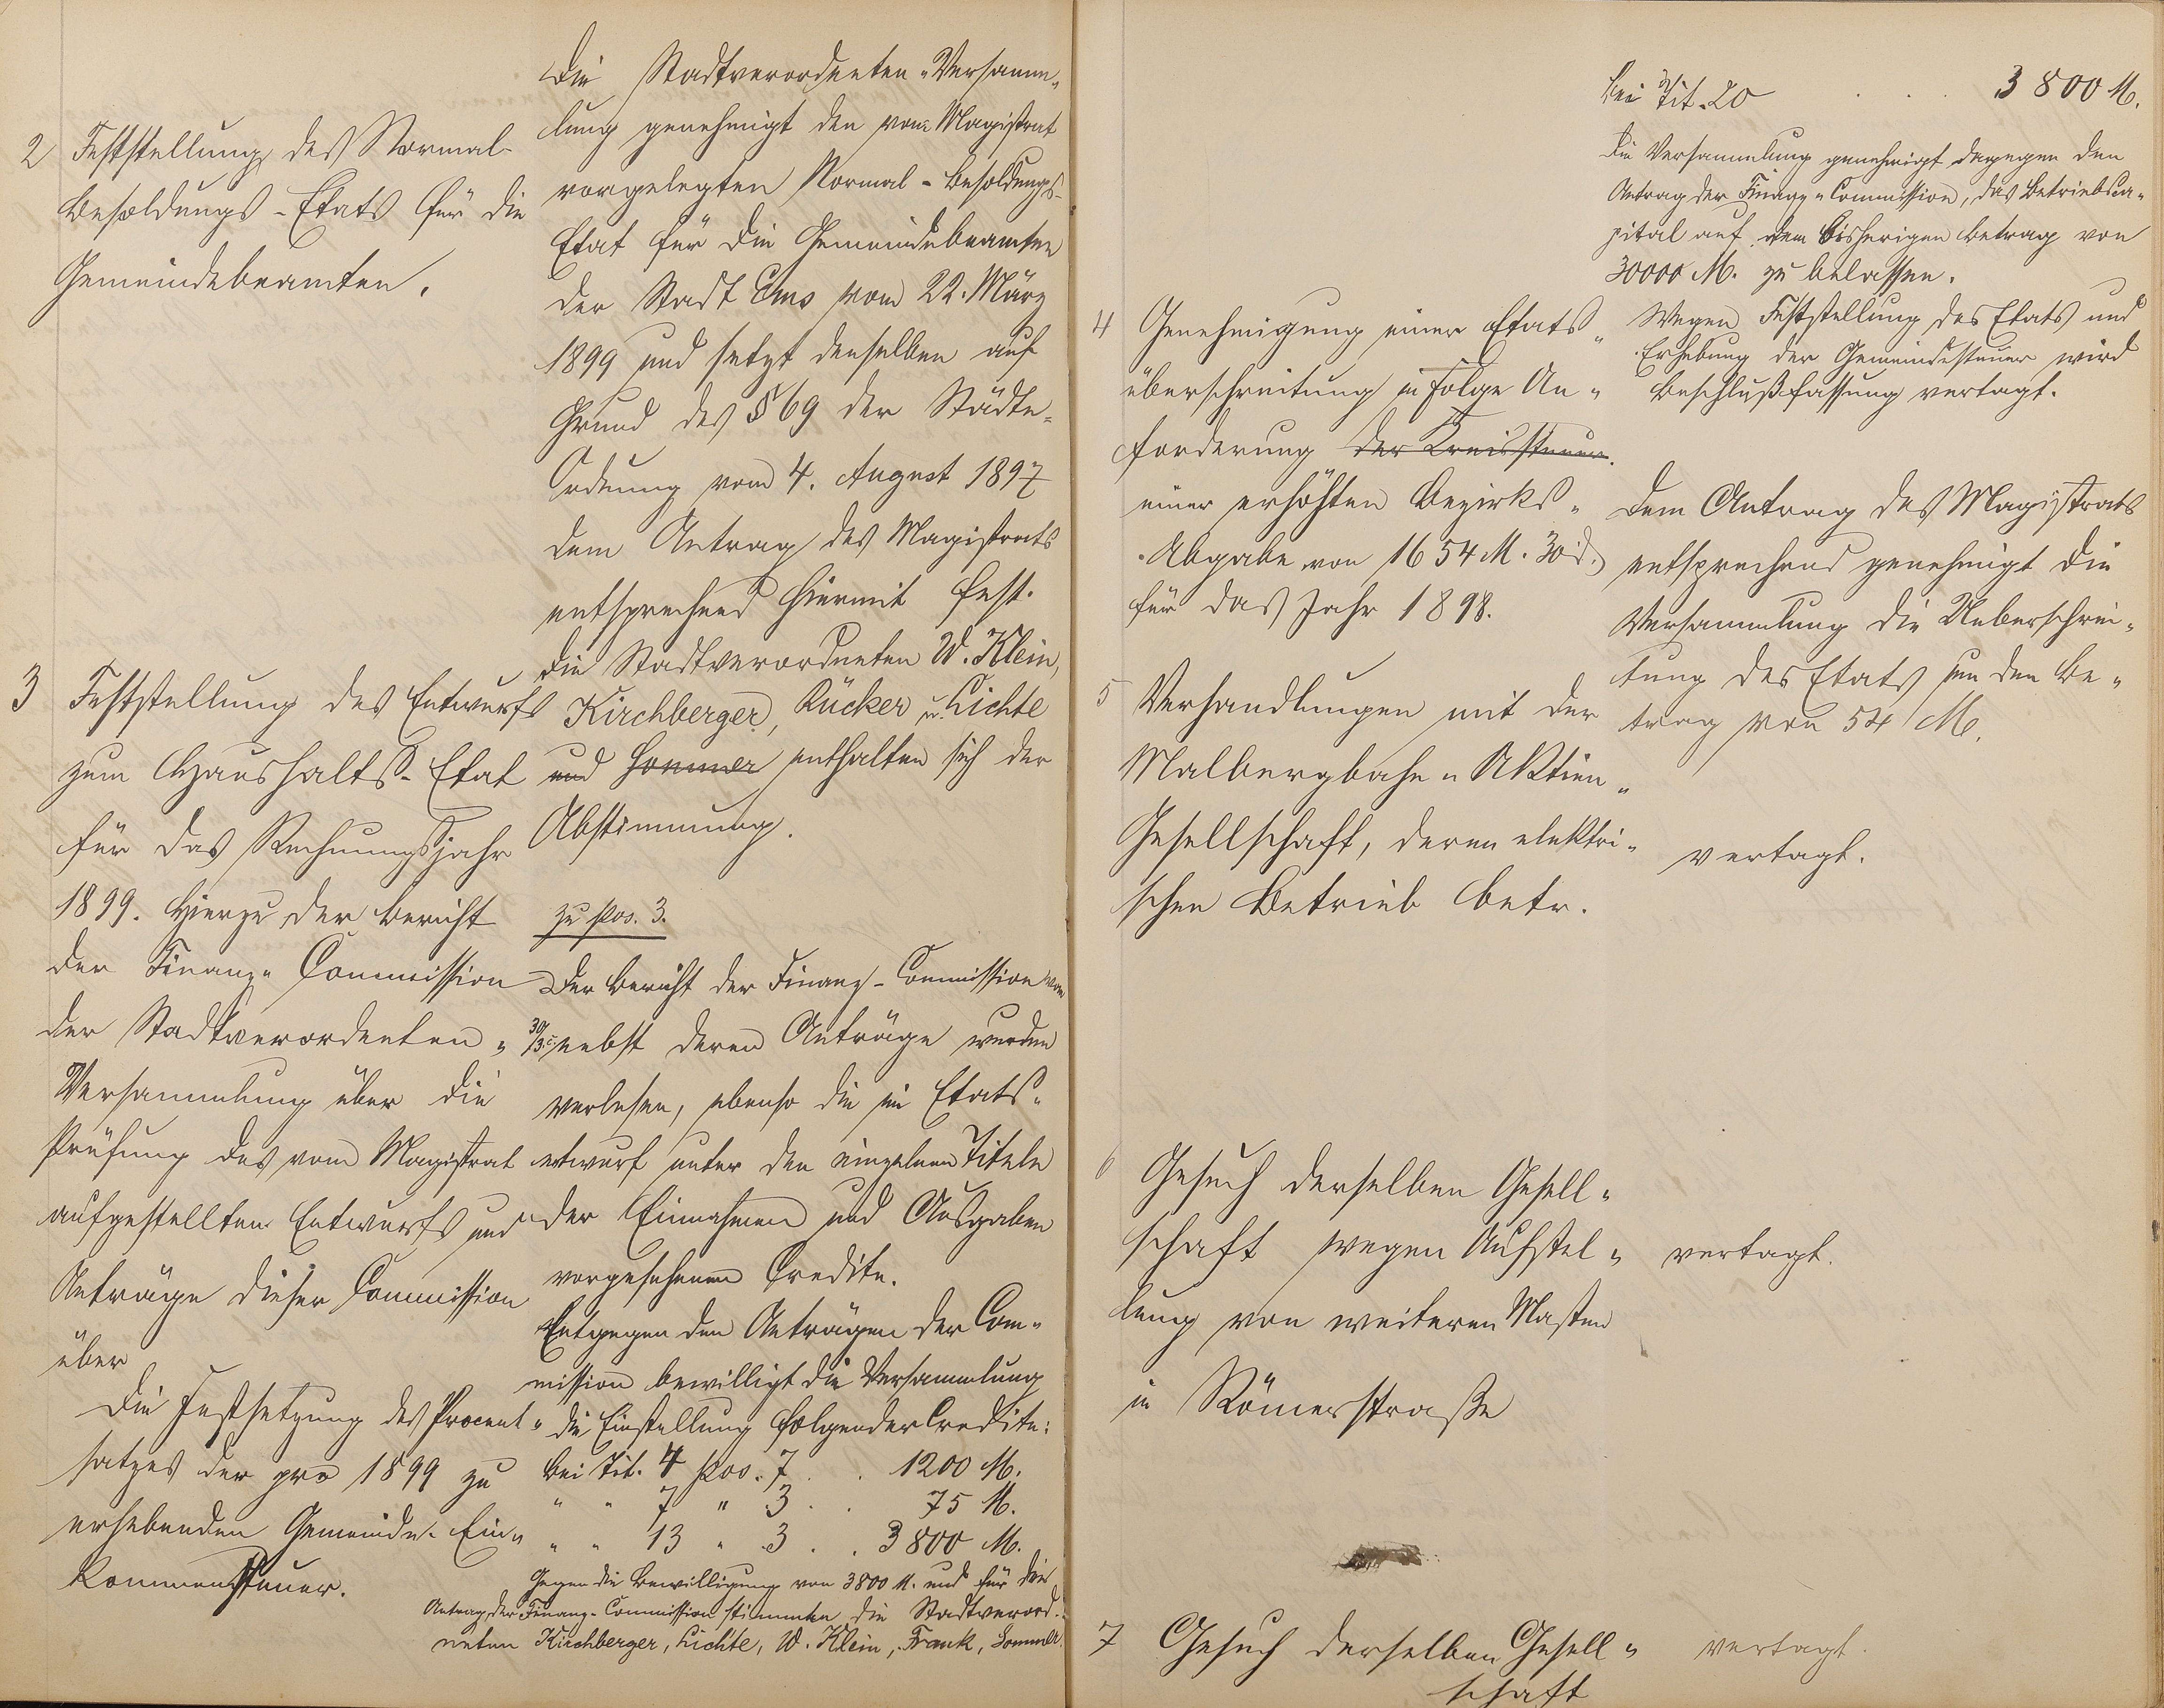 2 Feststellung des Normal-
Besoldungs-Etats für die
Gemeindebeamten.
Die Stadtverordneten-Versamm-
lung genehmigt den vom Magistrat
vorgelegten Normal-Besoldungs-
Etat für die Gemeindebeamten
der Stadt Ems vom 22. März
1899 und setzt denselben auf
Grund des § 69 der Städte-
Ordnung vom 4. August 1897
dem Antrag des Magistrats
entsprechend hiermit fest.
Die Stadtverordneten W. Klein,
Kirchberger, Rücker u. Lichte
und Sommer enthalten sich der
Abstimmung.
3 Feststellung des Entwurfs
zum Haushalts-Etat
für das Rechnungsjahr
1899. Hierzu der Bericht
der Finanz-Commission
der Stadtverordneten-
Versammlung über die
Prüfung des vom Magistrat
aufgestellten Entwurfs und
Anträge dieser Commission
über
die Festsetzung des Procent-
satzes der pro 1899 zu
erhebenden Gemeinde-Ein-
kommensteuer.
zu Pos. 3.
Der Bericht der Finanz-Commission vom
30/3. nebst deren Anträge wurden
verlesen, ebenso die im Etats-
entwurf unter den einzelnen Titeln
der Einnahmen und Ausgaben
vorgesehenen Credite.
Entgegen den Anträgen der Com-
mission bewilligt die Versammlung
die Einstellung folgender Credite:
bei Tit. 4 Pos. 7 . . 1200 M.
" " 7 " 3 . . 75 M.
" " 13 " 3 . . 3800 M.
Gegen die Bewilligung von 3800 M. und für die
Antrag der Finanz-Commission stimmten die Stadtverord-
neten Kirchberger, Lichte, W. Klein, Frank, Sommer.
bei Tit. 20 . . . 3800 M.
Die Versammlung genehmigt dagegen den
Antrag der Finanz-Commission, das Betriebsca-
pital auf dem bisherigen Betrag von
30000 M. zu belassen.
Wegen Feststellung des Etats und
Erhebung der Gemeindesteuer wird
Beschlußfassung vertagt.
4 Genehmigung einer Etats-
überschreitung in Folge An-
forderung der Kreissteuer.
einer erhöhten Bezirks-
Abgabe von 1654 M. 30 d.
für das Jahr 1898.
Dem Antrag des Magistrats
entsprechend genehmigt die
Versammlung die Ueberschrei-
tung des Etats um den Be-
trag von 54 M.
5 Verhandlungen mit der
Malbergbahn-Aktien-
Gesellschaft, deren elektri-
schen Betrieb betr.
vertagt.
6 Gesuch derselben Gesell-
schaft wegen Aufstel-
lung von weiteren Masten
in Römerstraße
vertagt.
7 Gesuch derselben Gesell-
schaft
vertagt.